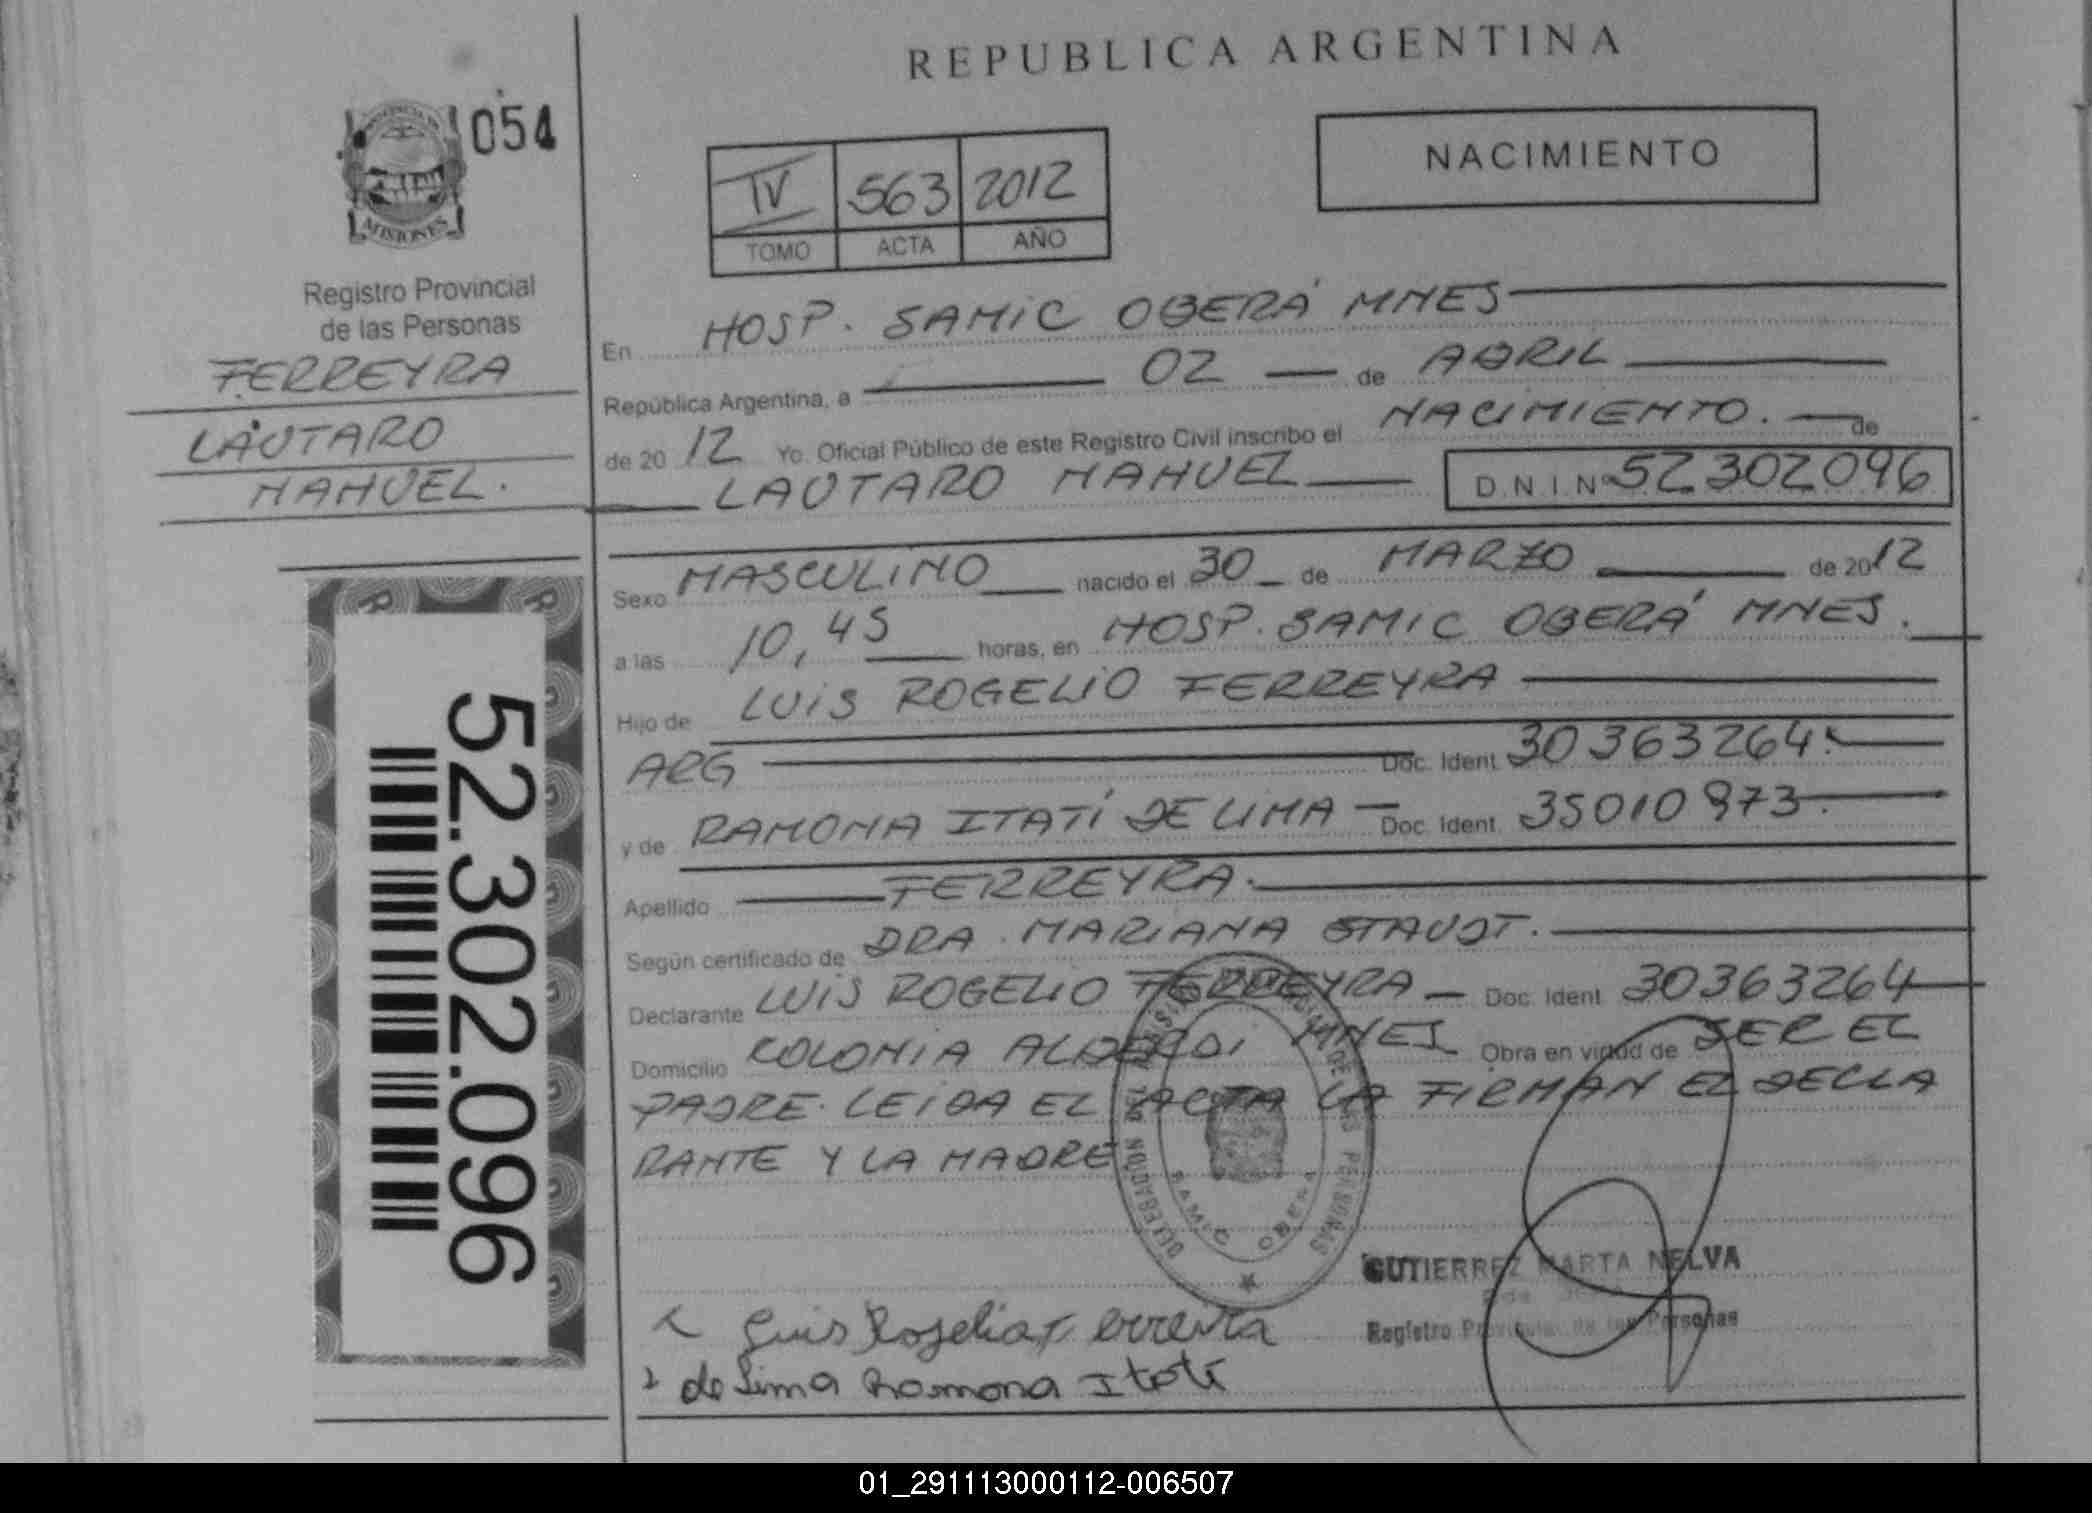 REPUBLICA ARGENTINA
054
PROVINCIA DE
MISIONES
NACIMIENTO
IV 563 2012
TOMO ACTA AÑO
Registro Provincial
de las Personas
FERREYRA
LAUTARO
MANUEL.
En HOSP. SAMIC OBERÁ MNES
República Argentina, a 02 de ABRIL
de 20 12 Yo. Oficial Público de este Registro Civil inscribo el NACIMIENTO. de
LAUTARO MANUEL D.N.I. Nº 52302096
Sexo MASCULINO nacido el 30 de MARZO de 2012
a las 10,45 horas, en HOSP. SAMIC OBERÁ MNES.
Hijo de LUIS ROGELIO FERREYRA
ARG Doc. Ident. 30363264.
y de RAMONA ITATÍ DE LIMA Doc. Ident. 35010973.
Apellido FERREYRA.
Según certificado de DRA. MARIANA STAUDT.
Declarante LUIS ROGELIO FERREYRA Doc. Ident. 30363264
Domicilio COLONIA ALBERDI MNES Obra en virtud de SER EL
PADRE. LEIDA EL ACTA LA FIRMAN EL DECLA
RANTE Y LA MADRE
52.302.096
DELEGACION DEL REGISTRO PROVINCIAL DE LAS PERSONAS
SAMIC OBERA
GUTIERREZ MARTA NELVA
Registro Provincial de las Personas
Luis Rogelio Ferreira
de Lima Ramona Itatí
01_291113000112-006507